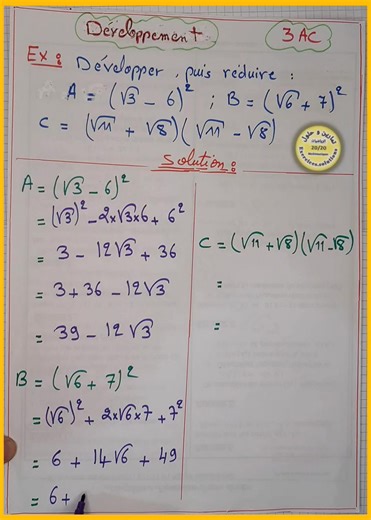 Développement.
3 AC
Ex : Développer, puis réduire :
A = (√3 - 6)² ; B = (√6 + 7)²
C = (√11 + √8)(√11 - √8)
20/20
Solution :
A = (√3 - 6)²
= (√3)² - 2×√3×6 + 6²
= 3 - 12√3 + 36
= 3 + 36 - 12√3
= 39 - 12√3
B = (√6 + 7)²
= (√6)² + 2×√6×7 + 7²
= 6 + 14√6 + 49
= 6 +
C = (√11 + √8)(√11 - √8)
=
=